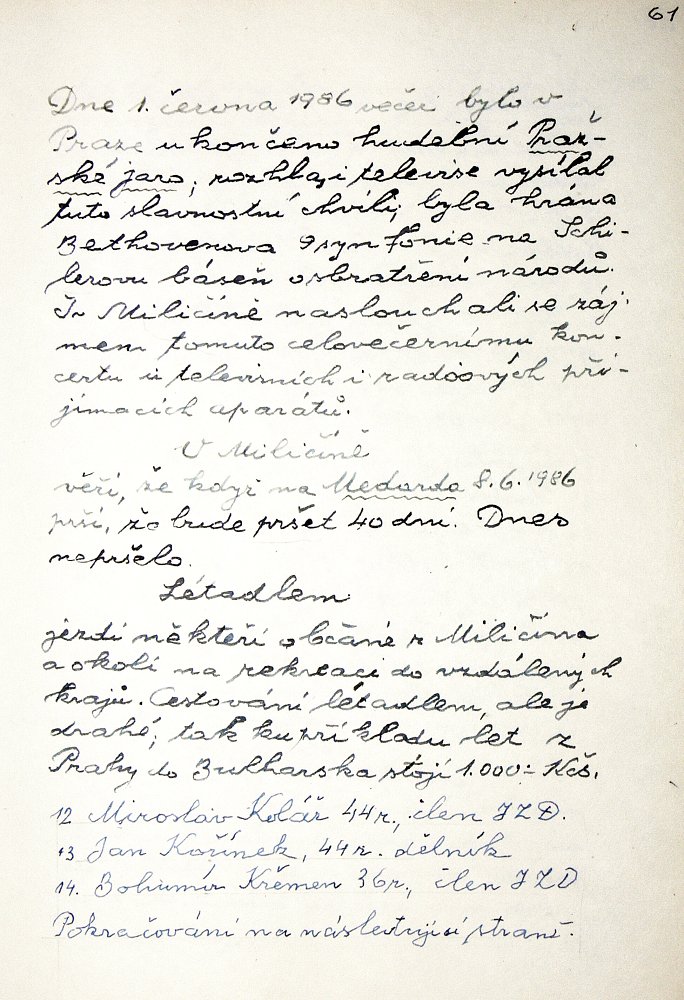 61
Dne 1. června 1986 večer bylo v
Praze ukončeno hudební Praž-
ské jaro; rozhlas i televise vysílal
tuto slavnostní chvíli; byla hrána
Bethovenova 9 synfonie na Schi-
lerovu báseň o sbratření národů.
I v Miličíně naslouchali se záj-
mem tomuto celovečernímu kon-
certu u televisních i radiových při-
jímacích aparátů.
V Miličíně
věří, že když na Medarda 8.6.1986
prší, že bude pršet 40 dní. Dnes
nepršelo.
Létadlem
jezdí někteří občané z Miličína
a okolí na rekreaci do vzdálených
krajů. Cestování létadlem, ale je
drahé; tak ku příkladu let z
Prahy do Bulharska stojí 1.000.- Kčs.
12 Miroslav Kolář 44 r., člen JZD.
13 Jan Kořínek, 44 r. dělník
14. Bohumír Křemen 36 r., člen JZD
Pokračování na následující straně.